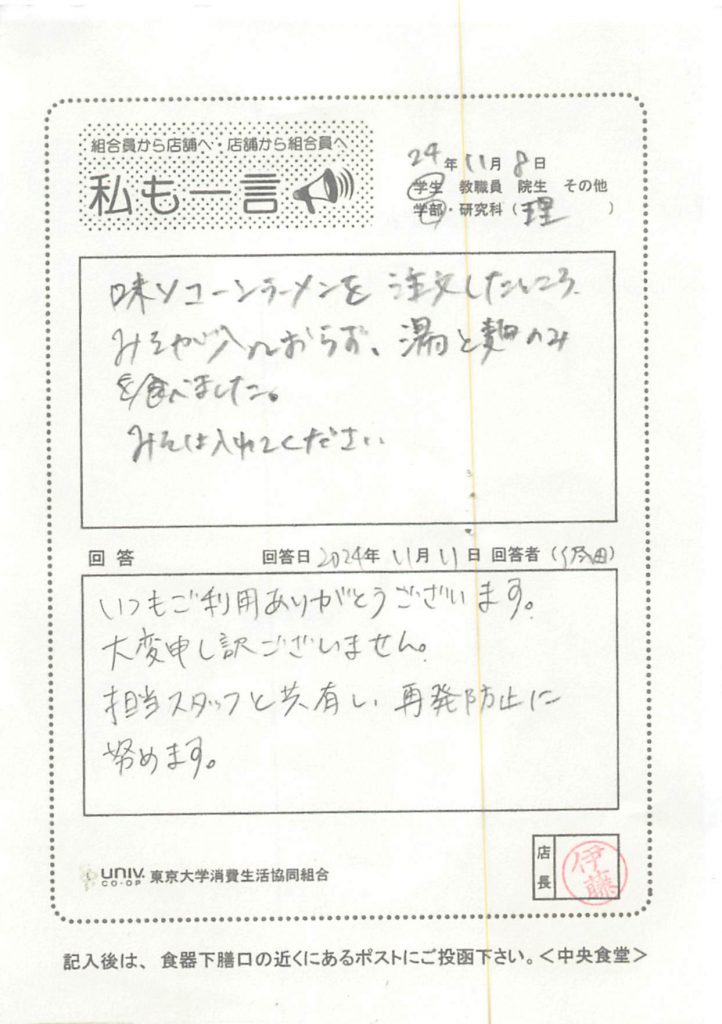 組合員から店舗へ・店舗から組合員へ
私も一言
24年11月8日
学生 教職員 院生 その他
学部・研究科（理）
味ソコーンラーメンを注文したところ、
みそが入っておらず、湯と麺のみ
を食べました。
みそは入れてください
回答 回答日2024年11月11日 回答者（田）
いつもご利用ありがとうございます。
大変申し訳ございません。
担当スタッフと共有し、再発防止に
努めます。
店長
伊藤
UNIV. CO-OP 東京大学消費生活協同組合
記入後は、食器下膳口の近くにあるポストにご投函下さい。＜中央食堂＞